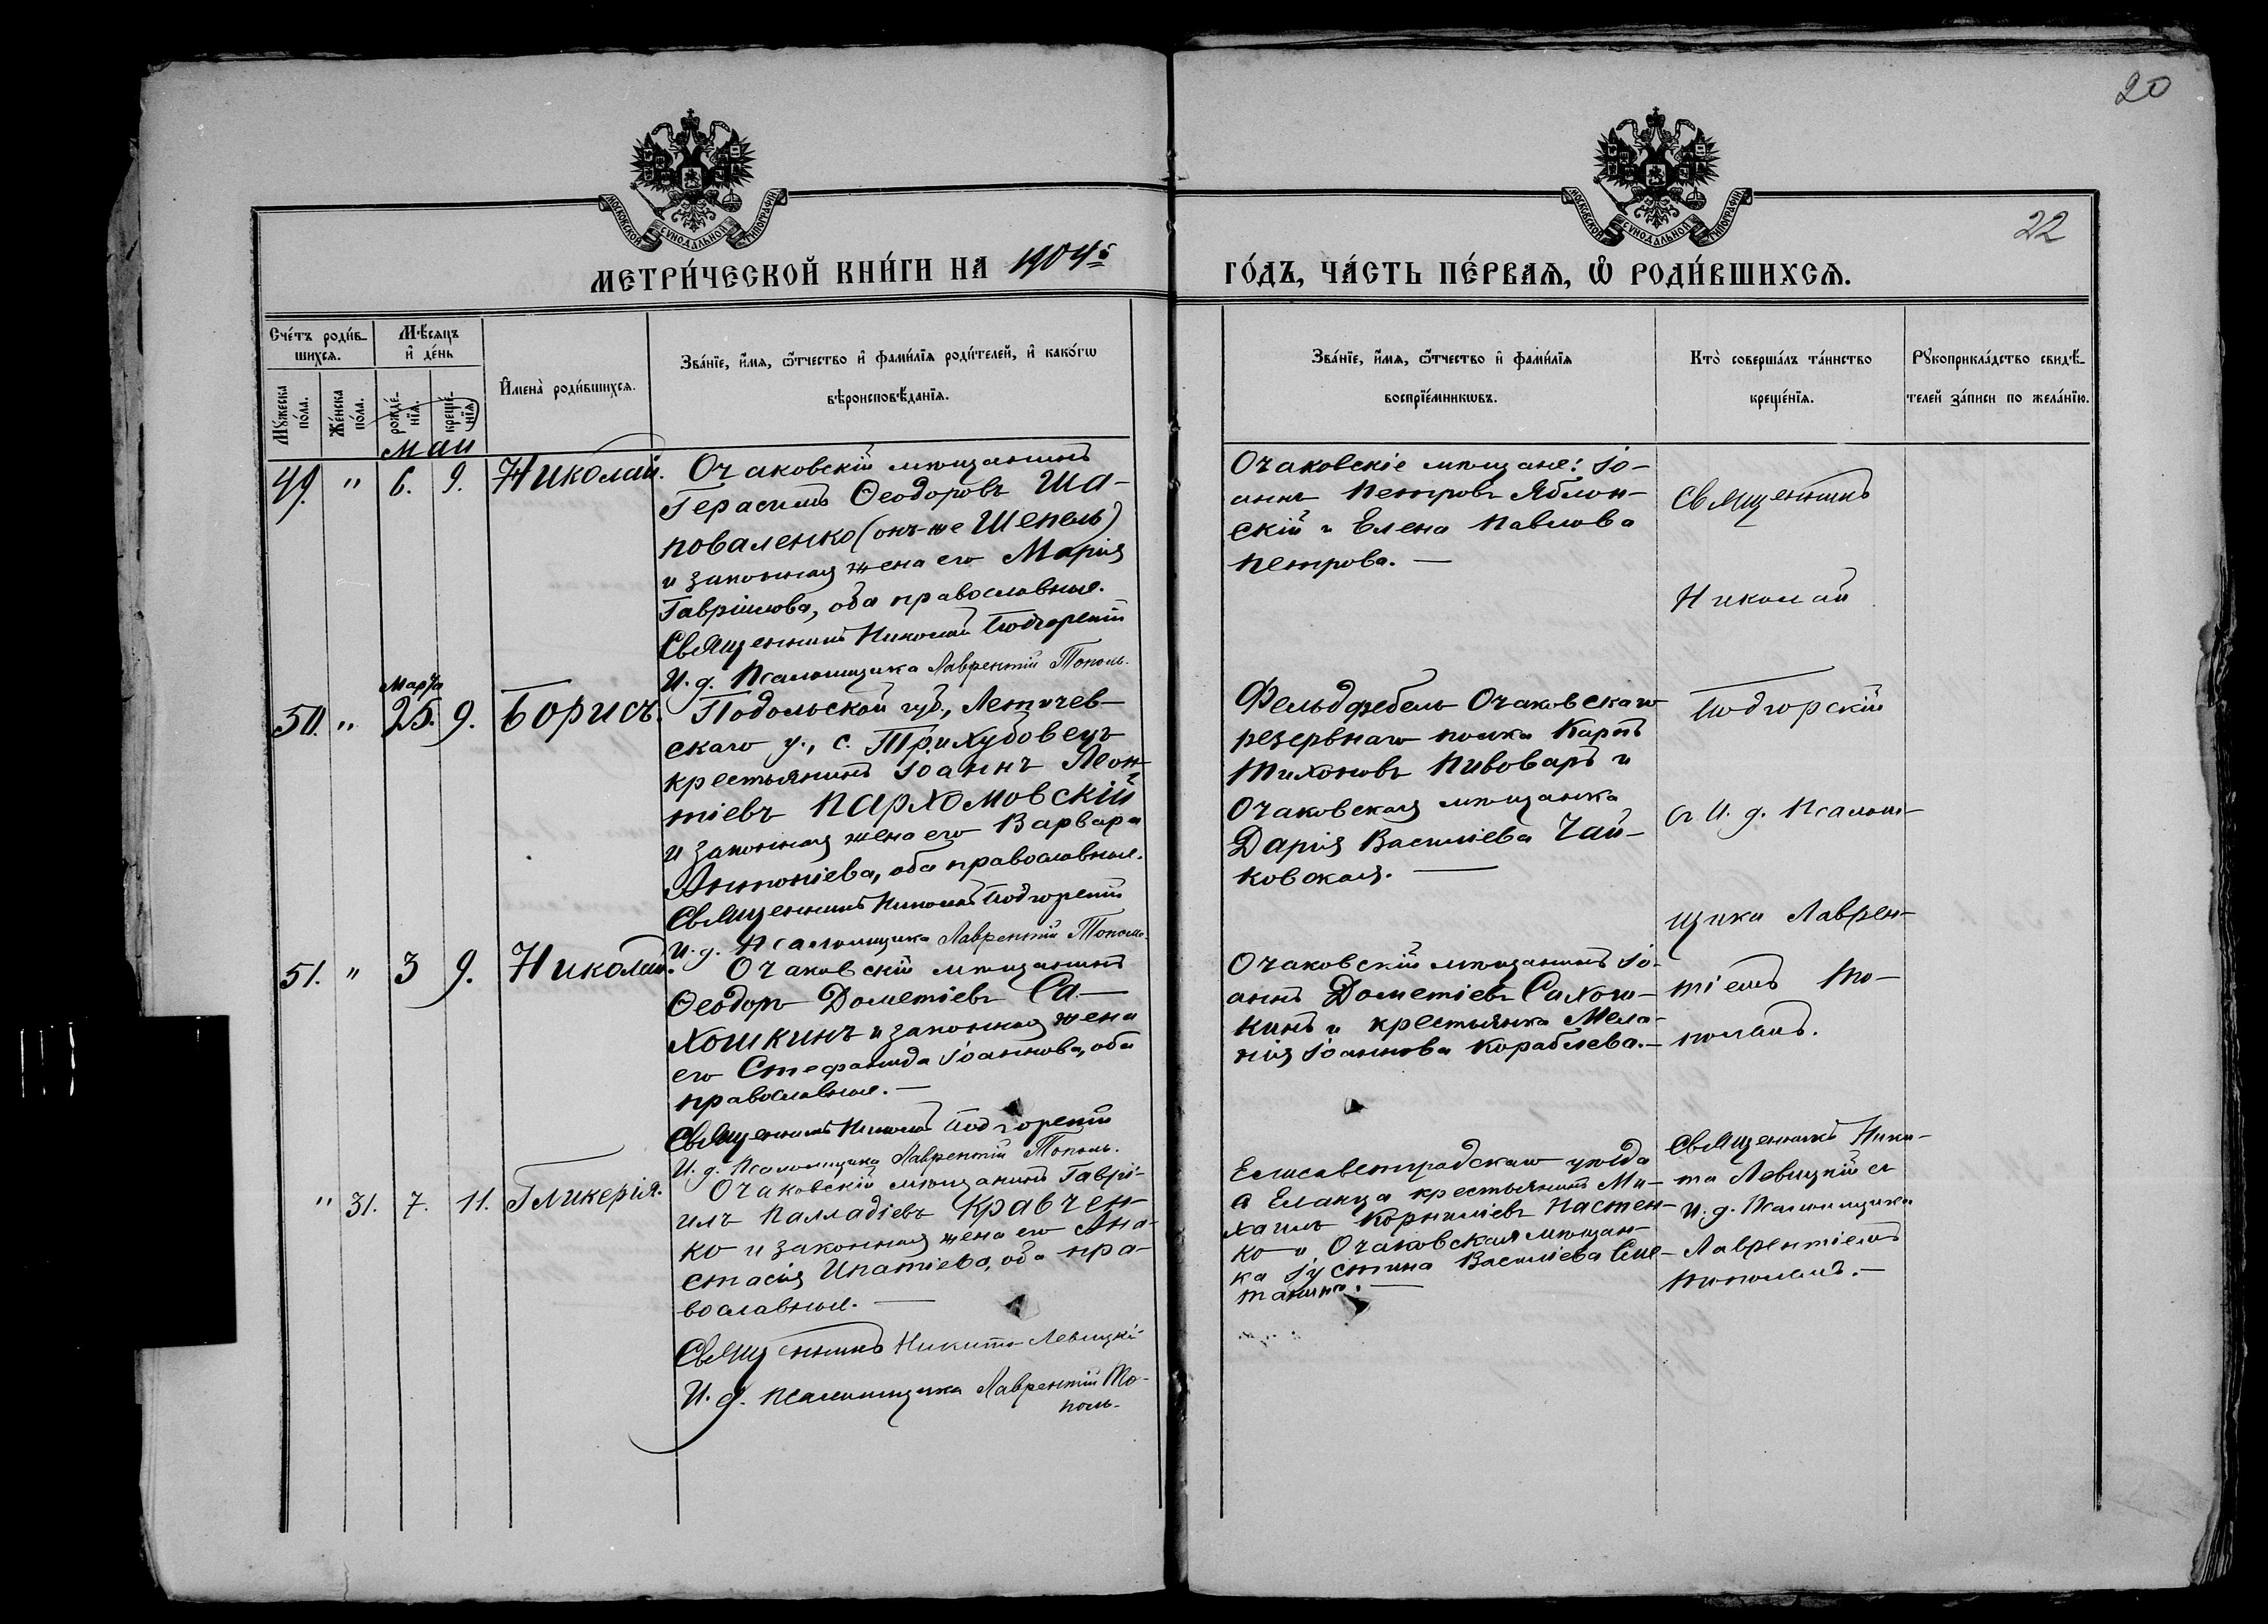 20
22
МОСКОВСКОЙ СѴНОДАЛЬНОЙ ТИПОГРАФІИ
МОСКОВСКОЙ СѴНОДАЛЬНОЙ ТИПОГРАФІИ
МЕТРИ́ЧЕСКОЙ КНИ́ГИ НА 1904й
ГО́ДЪ, ЧА́СТЬ ПЕ́РВАѦ, Ѽ РОДИ́ВШИХСѦ.
Сче́тъ роди́в-
шихсѧ.
Мѣ́сѧцъ
и҆ де́нь
Мꙋ́жеска по́ла.
Же́нска по́ла.
рожде́-
нїѧ.
креще́-
нїѧ.
И҆мена̀ роди́вшихсѧ.
Зва́нїе, и҆́мѧ, ѻ҆́тчество и҆ фами́лїѧ роди́телей, и҆ како́гѡ
вѣроисповѣ́данїѧ.
Зва́нїе, и҆́мѧ, ѻ҆́тчество и҆ фами́лїѧ
воспрїе́мникѡвъ.
Кто̀ соверша́лъ та́инство
креще́нїѧ.
Рꙋкоприкла́дство свидѣ́-
телей за́писи по жела́нїю.
Май
49. " 6. 9. Николай.
Очаковскій мѣщанинъ
Герасимъ Ѳеодоровъ Ша-
поваленко (онъ-же Шепель)
и законная жена его Марія
Гавріилова, оба православные.
Священникъ Николай Подгорскій
И. д. Псаломщика Лаврентій Тополь.
Очаковскіе мѣщане: Іо-
аннъ Петровъ Яблон-
скій и Елена Павлова
Петрова. —
Священникъ
Николай
Подгорскій
съ И. д. Псалом-
щика Лаврен-
тіемъ То-
полемъ.
Марта
50. " 25. 9. Борисъ.
Подольской губ., Летичев-
скаго у., с. Трихубовецъ
крестьянинъ Іоаннъ Леон-
тіевъ Пархомовскій
и законная жена его Варвара
Антоніева, оба православные.
Священникъ Николай Подгорскій
И. д. Псаломщика Лаврентій Тополь.
Фельдфебель Очаковскаго
резервнаго полка Карпъ
Тихоновъ Пивоваръ и
Очаковская мѣщанка
Дарія Василіева Чай-
ковская. —
51. " 3 9. Николай.
Очаковскій мѣщанинъ
Ѳеодоръ Дометіевъ Са-
хошкинъ и законная жена
его Стефанида Іоаннова, оба
православные. —
Священникъ Николай Подгорскій
И. д. Псаломщика Лаврентій Тополь.
Очаковскій мѣщанинъ Іо-
аннъ Дометіевъ Сахош-
кинъ и крестьянка Мела-
нія Іоаннова Кораблева. —
" 31. 7. 11. Гликерія.
Очаковскій мѣщанинъ Гаврі-
илъ Палладіевъ Кравчен-
ко и законная жена его Ана-
стасія Ипатіева, оба пра-
вославные. —
Священникъ Никита Левицкій
И. д. Псаломщика Лаврентій То-
поль.
Елисаветградскаго уѣзда
с Еланца крестьянинъ Ми-
хаилъ Корниліевъ Настен-
ко и Очаковская мѣщан-
ка Іустина Василіева Сме-
танина. —
Священникъ Ники-
та Левицкій съ
И. д. Псаломщика
Лаврентіемъ
Тополемъ. —